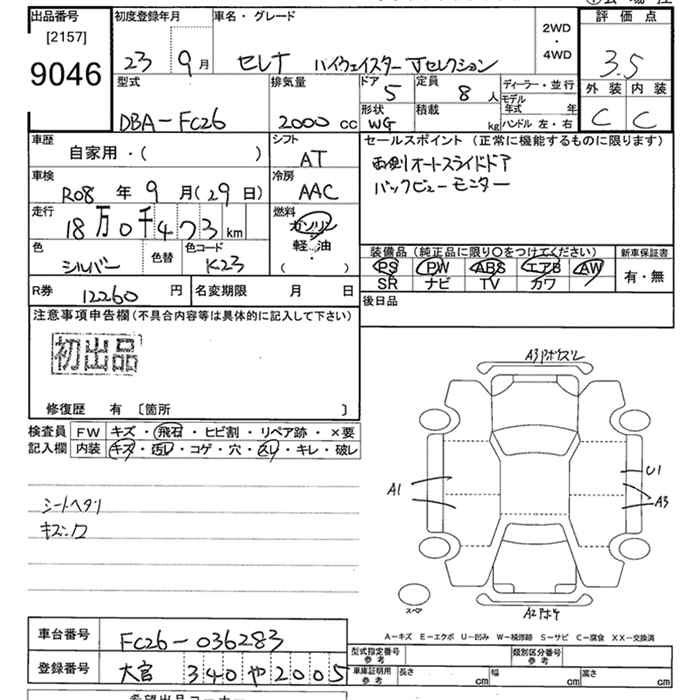 出品番号
[2157]
9046
初度登録年月
23 9月
車名・グレード
セレナ ハイウェイスター Jセレクション
2WD
・
4WD
評価点
3.5
外装 内装
C C
型式
DBA-FC26
排気量
2000 cc
ドア
5
形状
WG
定員
8 人
積載
kg
ディーラー・並行
モデル年式 年
ハンドル 左・右
車歴
自家用・( )
シフト
AT
車検
R08 年 9 月 (29 日)
冷房
AAC
走行
18万0千473km
燃料
ガソリン
軽油
( )
色
シルバー
色替
色コード
K23
R券 12260 円
名変期限 月 日
セールスポイント (正常に機能するものに限ります)
両側オートスライドドア
バックビューモニター
装備品 (純正品に限り○をつけてください)
PS PW ABS エアB AW
SR ナビ TV カワ
新車保証書
有・無
後日品
注意事項申告欄 (不具合内容等は具体的に記入して下さい)
初出品
修復歴 有 〔箇所 〕
検査員記入欄
FW キズ・飛石・ヒビ割・リペア跡・×要
内装 キズ・汚レ・コゲ・穴・スレ・キレ・破レ
シートヘタリ
A3
A1
U1
A3
スペア
A2
A-キズ E-エクボ U-凹み W-補修跡 S-サビ C-腐食 XX-交換済
車台番号 FC26-036283
登録番号 大宮 340 や 2005
型式指定番号 参考
類別区分番号 参考
車庫証明用 参考
長さ cm
幅 cm
高さ cm
希望出品コーナー